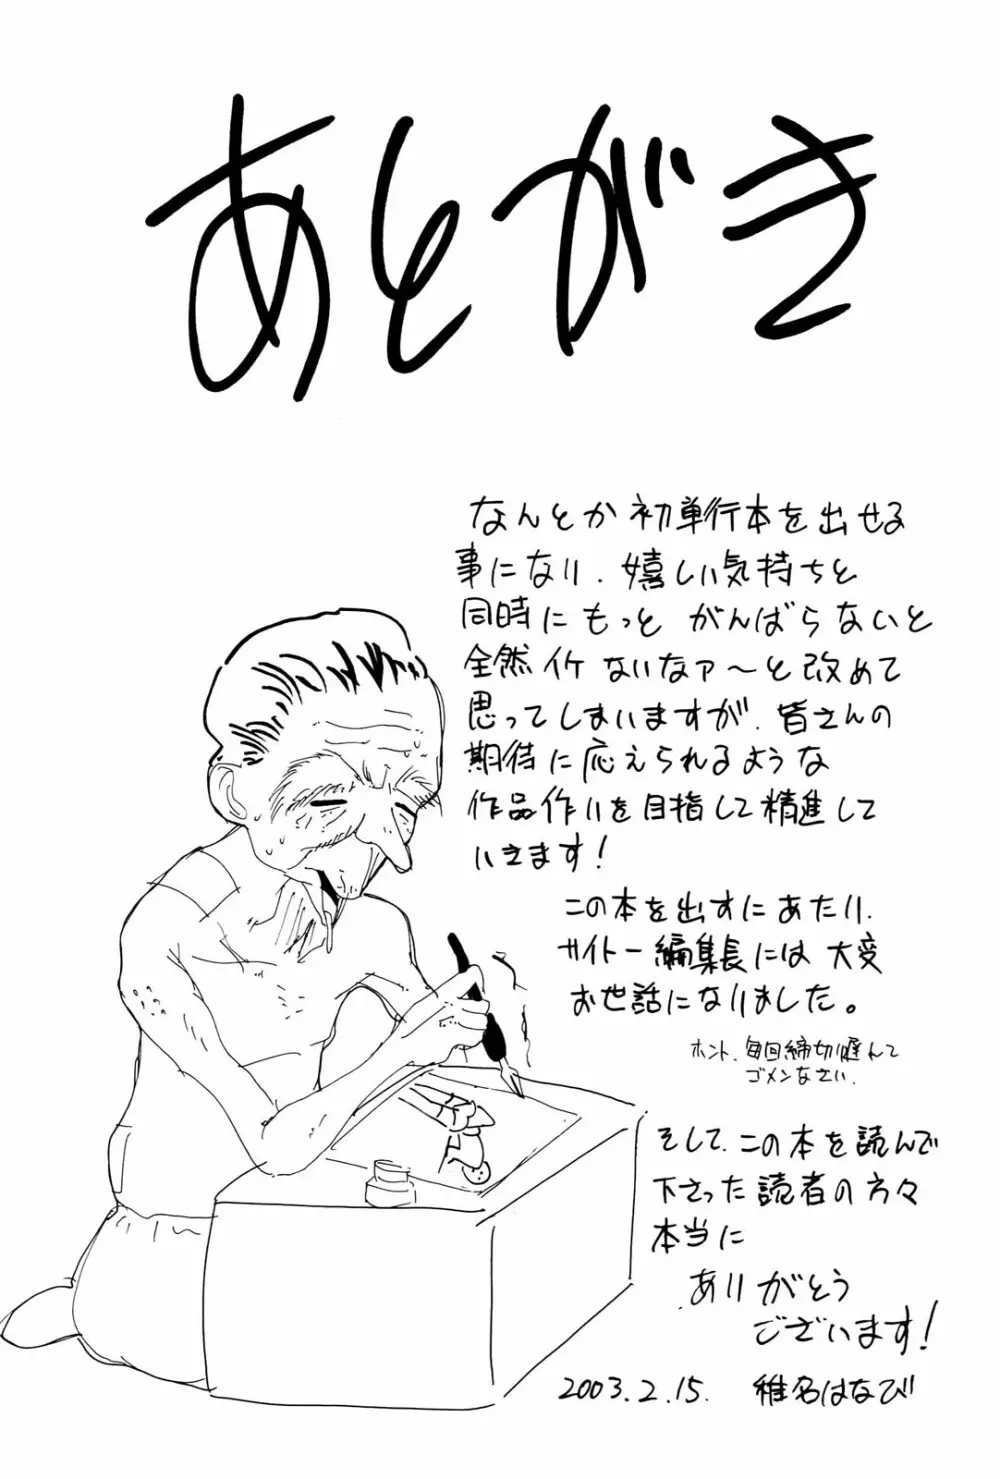 あとがき
なんとか初単行本を出せる
事になり、嬉しい気持ちと
同時にもっとがんばらないと
全然イケないなァ〜と改めて
思ってしまいますが、皆さんの
期待に応えられるような
作品作りを目指して精進して
いきます!
この本を出すにあたり、
サイトー編集長には大変
お世話になりました。
ホント、毎回締切遅れて
ゴメンなさい。
そして、この本を読んで
下さった読者の方々
本当に
ありがとう
ございます!
2003.2.15. 椎名はなび